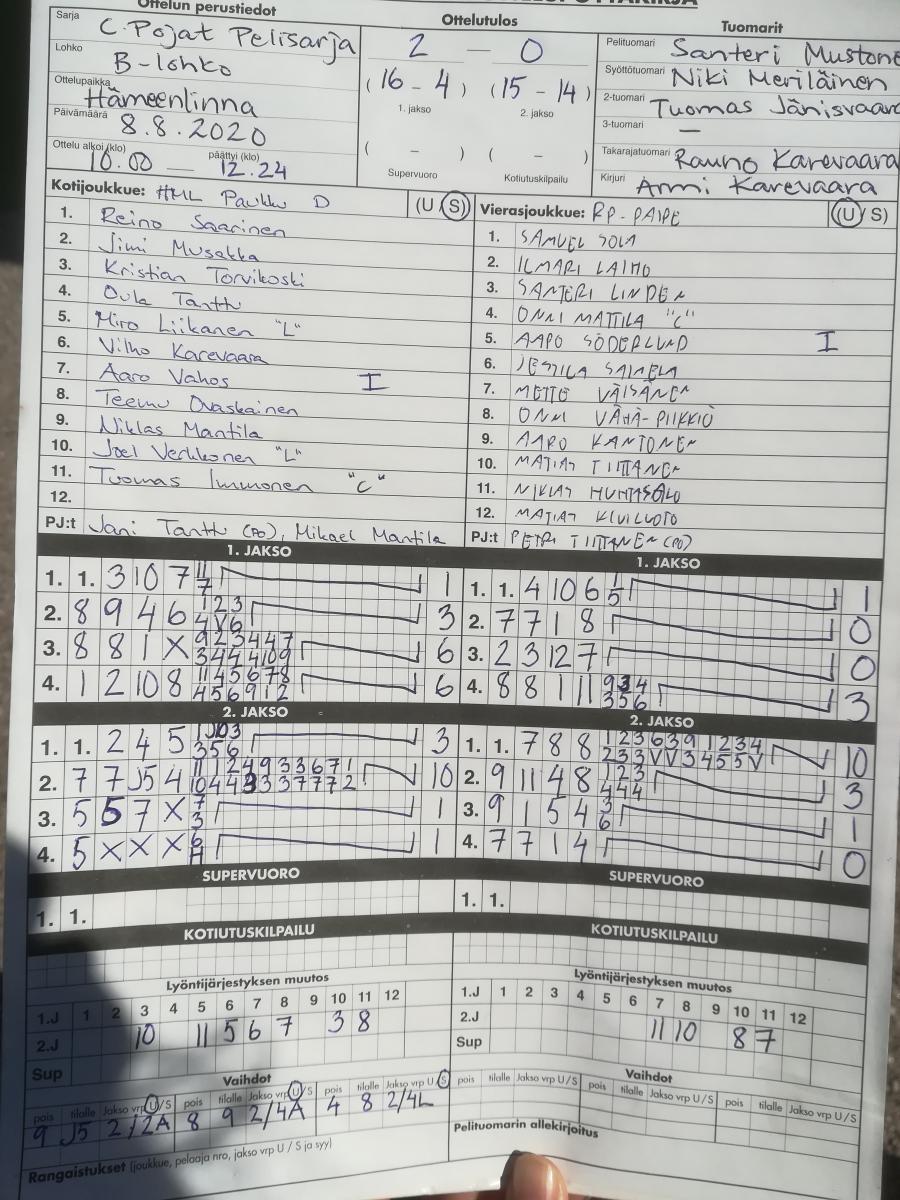 Ottelun perustiedot
Sarja C. Pojat Pelisarja
Lohko B-lohko
Ottelupaikka Hämeenlinna
Päivämäärä 8.8.2020
Ottelu alkoi (klo) päättyi (klo)
10.00 — 12.24
Ottelutulos
2 — 0
(16 - 4) (15 - 14)
1. jakso 2. jakso
( - ) ( - )
Supervuoro Kotiutuskilpailu
Tuomarit
Pelituomari Santeri
Syöttötuomari Niki Meriläinen
2-tuomari Tuomas Jänisvaara
3-tuomari —
Takarajatuomari Rauno Karevaara
Kirjuri Armi Karevaara
Kotijoukkue: HML Paukku D (U / S)
1. Reino Saarinen
2. Jimi Musakka
3. Kristian Torvikoski
4. Oula Tanttu
5. Miro Liikanen "L"
6. Vilho Karevaara
7. Aaro Vahos I
8. Teemu Ovaskainen
9. Niklas Mantila
10. Joel Verkkonen "L"
11. Tuomas Immonen "C"
12.
PJ:t Jani Tanttu (PO), Mikael Mantila
Vierasjoukkue: RP-PAIPE (U / S)
1. SAMUEL SOLA
2. ILMARI LAIHO
3. SANTERI LINDEN
4. ONNI MATTILA "C"
5. AAPO SÖDERLUND I
6. SAIMELA
7. METTE VÄISÄNEN
8. ONNI VÄHÄ-PIIKKIÖ
9. AARO KANTONEN
10. MATIAS TIITTANEN
11. NIKLAS HUHTASALO
12. MATIAS KIVILUOTO
PJ:t PETRI TIITTANEN (PO)
1. JAKSO
1. 1. 3 10 7 11 7 1
2. 8 9 4 6 1 2 3 4 V 6 3
3. 8 8 1 X 9 2 3 4 4 7 3 4 4 4 10 9 6
4. 1 2 10 8 11 4 5 6 7 8 4 5 6 9 1 2 6
1. JAKSO
1. 1. 4 10 6 1 5 1
2. 7 7 1 8 0
3. 2 3 12 7 0
4. 8 8 1 11 9 3 4 3 5 6 3
2. JAKSO
1. 1. 2 4 5 3 5 6 3
2. 7 7 J5 4 11 2 4 9 3 3 6 7 1 10 4 4 3 3 3 7 7 7 2 10
3. 5 5 7 X 7 3 1
4. 5 X X X 6 1
2. JAKSO
1. 1. 7 8 8 1 2 3 6 3 9 1 2 3 4 2 3 3 V V 3 4 5 5 V 10
2. 9 11 4 8 1 2 3 4 4 4 3
3. 9 1 5 4 3 6 1
4. 7 7 1 4 0
SUPERVUORO
1. 1.
SUPERVUORO
1. 1.
KOTIUTUSKILPAILU
KOTIUTUSKILPAILU
Lyöntijärjestyksen muutos
1.J 1 2 3 4 5 6 7 8 9 10 11 12
2.J 10 11 5 6 7 3 8
Sup
Lyöntijärjestyksen muutos
1.J 1 2 3 4 5 6 7 8 9 10 11 12
2.J 11 10 8 7
Sup
Vaihdot
pois tilalle Jakso vrp U/S pois tilalle Jakso vrp U/S pois tilalle Jakso vrp U/S
9 J5 2/2A 8 9 2/4A 4 8 2/4L
Vaihdot
pois tilalle Jakso vrp U/S pois tilalle Jakso vrp U/S pois tilalle Jakso vrp U/S
Rangaistukset (joukkue, pelaaja nro, jakso vrp U / S ja syy)
Pelituomarin allekirjoitus